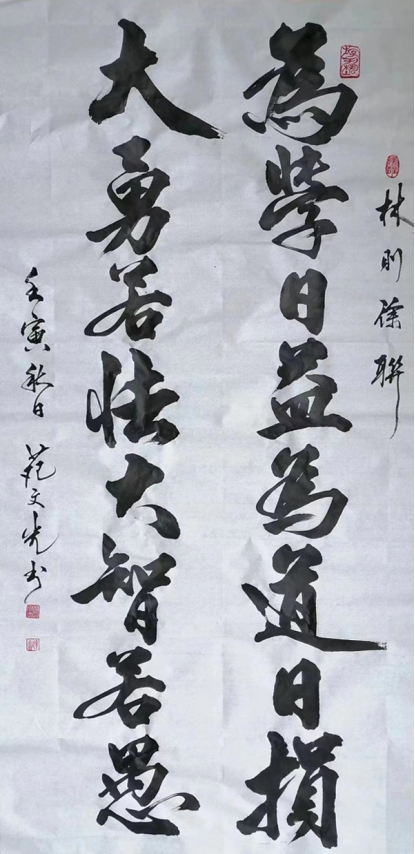 林則徐聯
為學日益為道日損
大勇若怯大智若愚
壬寅秋日 范文光书